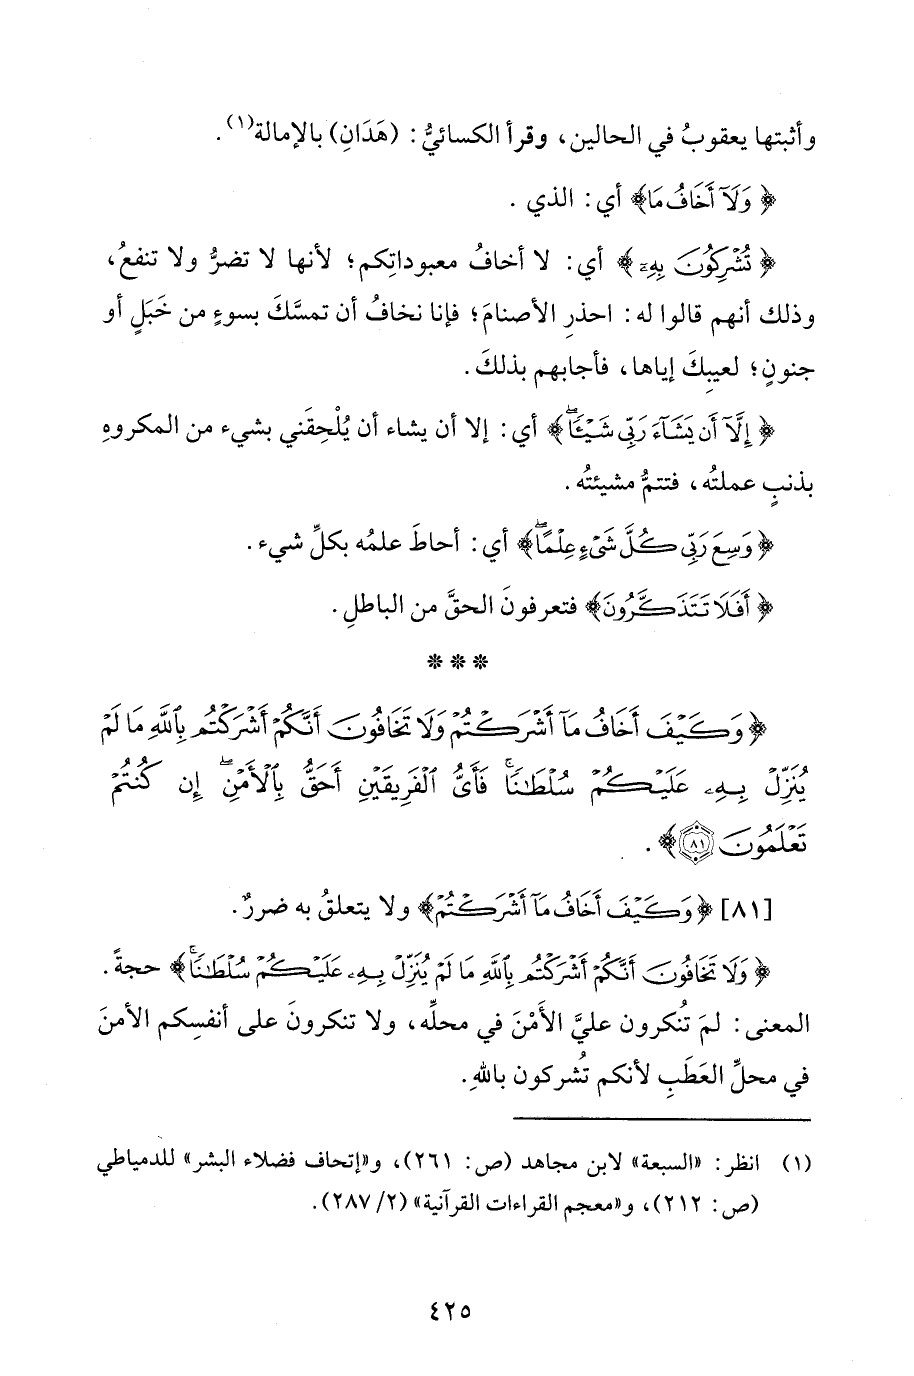 وأثبتها يعقوبُ في الحالين، وقرأ الكسائيُّ: (هَدَانِ) بالإمالة(١).
﴿وَلَآ أَخَافُ مَا﴾ أي: الذي .
﴿تُشْرِكُونَ بِهِۦٓ﴾ أي: لا أخافُ معبوداتِكم؛ لأنها لا تضرُّ ولا تنفعُ،
وذلك أنهم قالوا له: احذرِ الأصنامَ؛ فإنا نخافُ أن تمسَّكَ بسوءٍ من خَبَلٍ أو
جنونٍ؛ لعيبِكَ إياها، فأجابهم بذلكَ.
﴿إِلَّآ أَن يَشَآءَ رَبِّي شَيْـًٔاۗ﴾ أي: إلا أن يشاء أن يُلْحِقَني بشيء من المكروهِ
بذنبٍ عملتُه، فتتمُّ مشيئتُه.
﴿وَسِعَ رَبِّي كُلَّ شَيْءٍ عِلْمًاۗ﴾ أي: أحاطَ علمُه بكلِّ شيء.
﴿أَفَلَا تَتَذَكَّرُونَ﴾ فتعرفونَ الحقَّ من الباطلِ.
* * *
﴿وَكَيْفَ أَخَافُ مَآ أَشْرَكْتُمْ وَلَا تَخَافُونَ أَنَّكُمْ أَشْرَكْتُم بِٱللَّهِ مَا لَمْ
يُنَزِّلْ بِهِۦ عَلَيْكُمْ سُلْطَٰنًاۚ فَأَيُّ ٱلْفَرِيقَيْنِ أَحَقُّ بِٱلْأَمْنِۖ إِن كُنتُمْ
تَعْلَمُونَ ﴿٨١﴾﴾.
[٨١] ﴿وَكَيْفَ أَخَافُ مَآ أَشْرَكْتُمْ﴾ ولا يتعلقُ به ضررٌ.
﴿وَلَا تَخَافُونَ أَنَّكُمْ أَشْرَكْتُم بِٱللَّهِ مَا لَمْ يُنَزِّلْ بِهِۦ عَلَيْكُمْ سُلْطَٰنًاۚ﴾ حجةً.
المعنى: لمَ تُنكرون عليَّ الأَمْنَ في محلِّه، ولا تنكرونَ على أنفسِكم الأمنَ
في محلِّ العَطَبِ لأنكم تُشركون باللهِ.
(١) انظر: «السبعة» لابن مجاهد (ص: ٢٦١)، و«إتحاف فضلاء البشر» للدمياطي
(ص: ٢١٢)، و«معجم القراءات القرآنية» (٢/ ٢٨٧).
٤٢٥